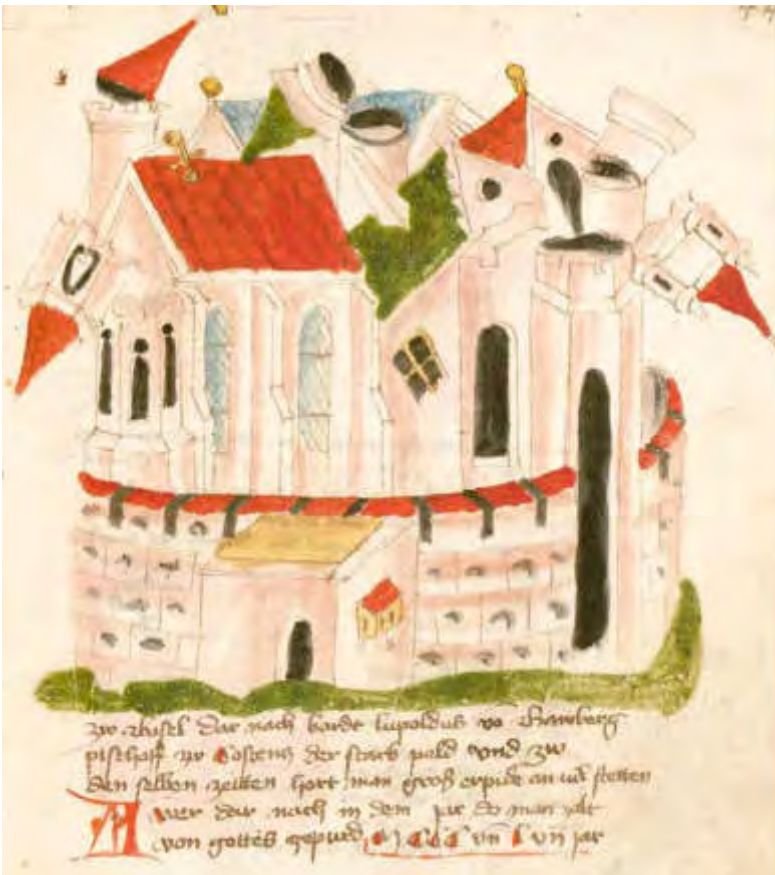 zw Basel Dar nach bardt lupoldus vō Bamberg
pischoff zw Costentz der starb pald vnd zw
den selben zeitten hort man groß erpidē an vil stetten
Aber dar nach in dem jar do man zalt
von gottes gepurd M CCC vn̄ L vn̄ jar